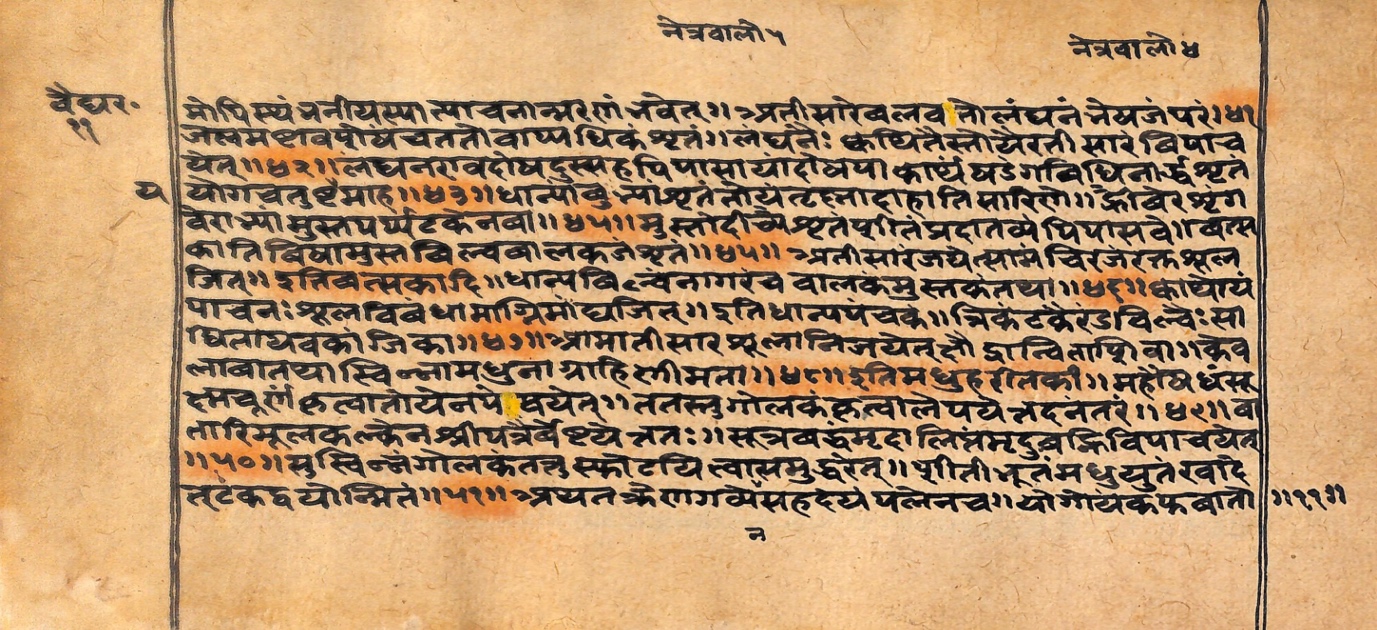 नेत्रवालो५
नेत्रवालो४
वैद्यर॰
११
मोपिस्यं मनीयस्या त्पाचनान्मरणं भवेत्॥ अतीसारेबलव तो लंघनं भेषजं परं॥
जलमष्टावषोयं चततो वाप्यधिकं शृतं॥ लंघनैः कथितैस्तोयैरतीसारं विपाच
येत्॥४२॥ लंघनरावदोषदुस्सह पिपासायां दोषपा कार्थ्यं षडंगविधिनार्द्धशृत
य
योगचतुष्टमाह॥४३॥ धान्यांबुभ्यां शृतं तोयं तृष्नादाहातिसारिणे॥ ह्रीवेरशृंग
वेराभ्यां मुस्तपर्प्पटकेनवा॥४५॥ मुस्तोदीच्यै शृतं शीतं प्रदातव्यं पिपासवे॥ वत्स
कातिविषामुस्तबिल्ववालकजं शृतं॥४५॥ अतीसारं जयेत्सामं चिरजं रक्तशूल
जित्॥ इतिवत्सकादि॥ धान्यबिल्वंनागरंच वालकंमुस्तकंतथा॥४६॥ क्वाथोयं
पाचनः शूलविबंधामाग्निमांद्यजित्॥ इतिधान्यपंचकं॥ त्रिकंटकैरंडबिल्वैः सा
धितायवकांजिका॥४७॥ आमातीसारशूलानिजयेत् क्षौद्रान्वितापिवा॥ केव
लावातथास्विन्नामधुनाग्राहिणीमता॥४८॥ इतिमधुहरीतकी॥ महौषधंसू
क्ष्मचूर्णं कृत्वातोयेनपे षयेत्॥ ततस्तुगोलकंकृत्वालेपयेत्तदनंतरं॥४९॥ वा
तारिमूलकल्केनश्रीपत्रैर्वेष्टयेत्ततः॥ सूत्रबद्धंमृदालिप्तंमृदुवह्निविपाचयेत्
॥५०॥ सुस्विन्नंगोलकंतत्तुस्फोटयित्वासमुद्धरेत्॥ शीतीभूतंमधुयुतंखादे
त्टंकद्वयोन्मितं॥५१॥ अथतक्रेणगव्येंसहदेयंपलेनच॥ योगोयंकफवातो
॥११॥
न